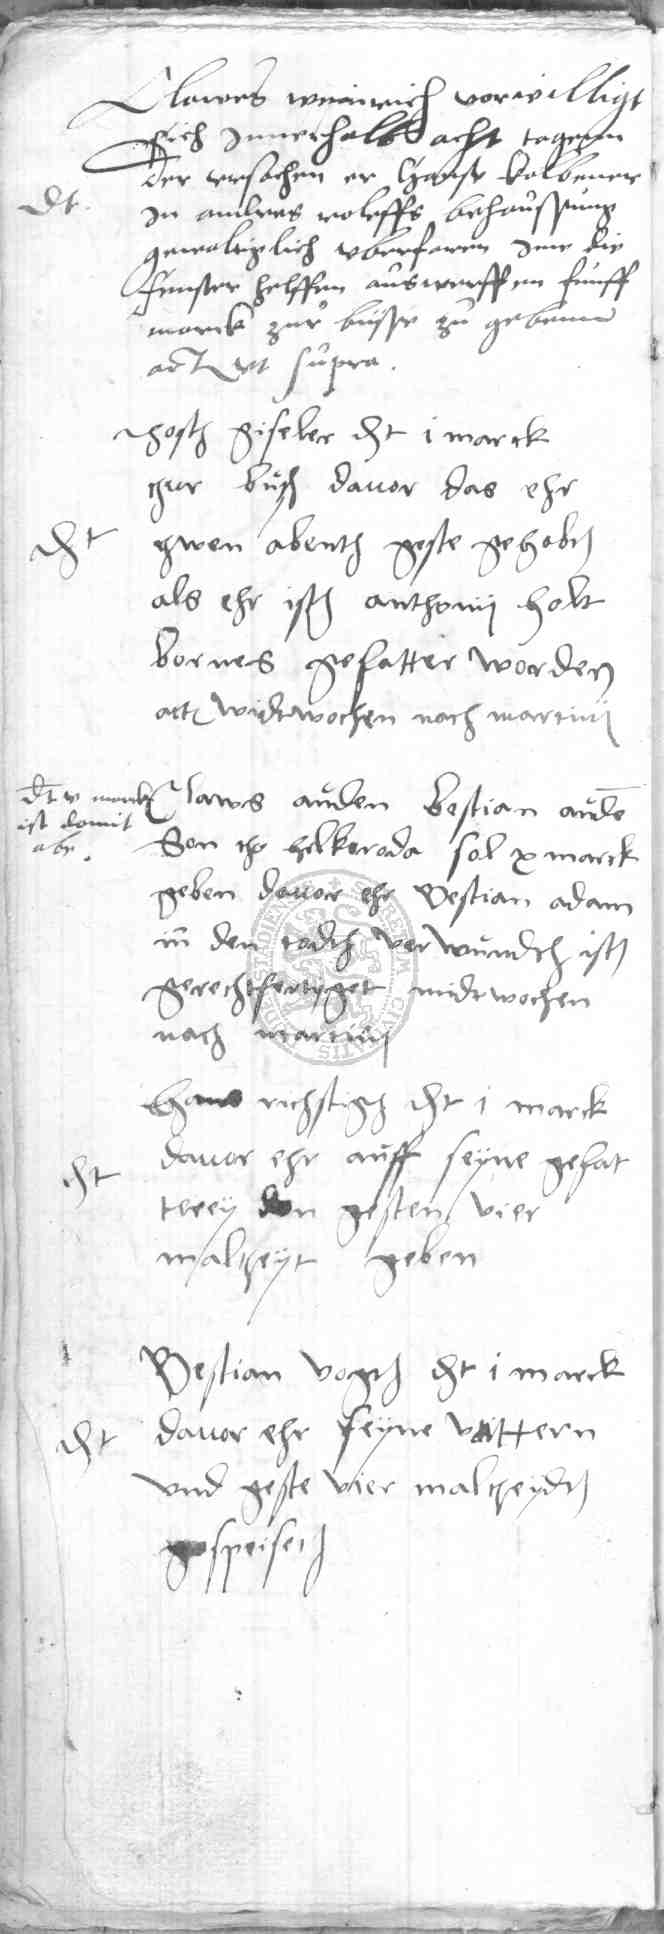 Clawes weinrich vorwilligt
sich Innerhalb acht tagenn
der ursachen er Hanse kolbener
dt.
In andres wolffs behausung
gewaltiglich uberfaren Ime die
fenster helffen auswerffen funff
marck zur busse zu gebenn
act ut supra.
Hosth giseler dt i marck
czur buß davor das ehr
dt
zwen abenth geste gehabth
als ehr isth anthonij holt
bornes gefatter worden
act Midtwochen nach martinij
dt v marck
ist domit
abe.
Claws auden bestian auden
Son tzo helkeroda sol x marck
geben davor ehr Bestian adam
in den todth verwundth isth
gerechtfertiget midtwochen
nach martinij
Hans richstigh dt i marck
davor ehr auff seyne gefat
dt
terey den gesten vier
maltzeyt geben
Bestian vogth dt i marck
dt
davor ehr seyne vattern
vnd geste vier maltzeydth
gespeiseth